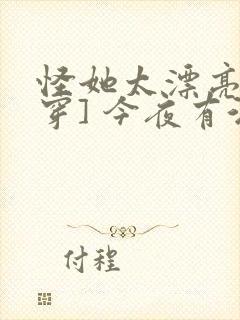 怪她太漂亮
穿] 今夜有
付程